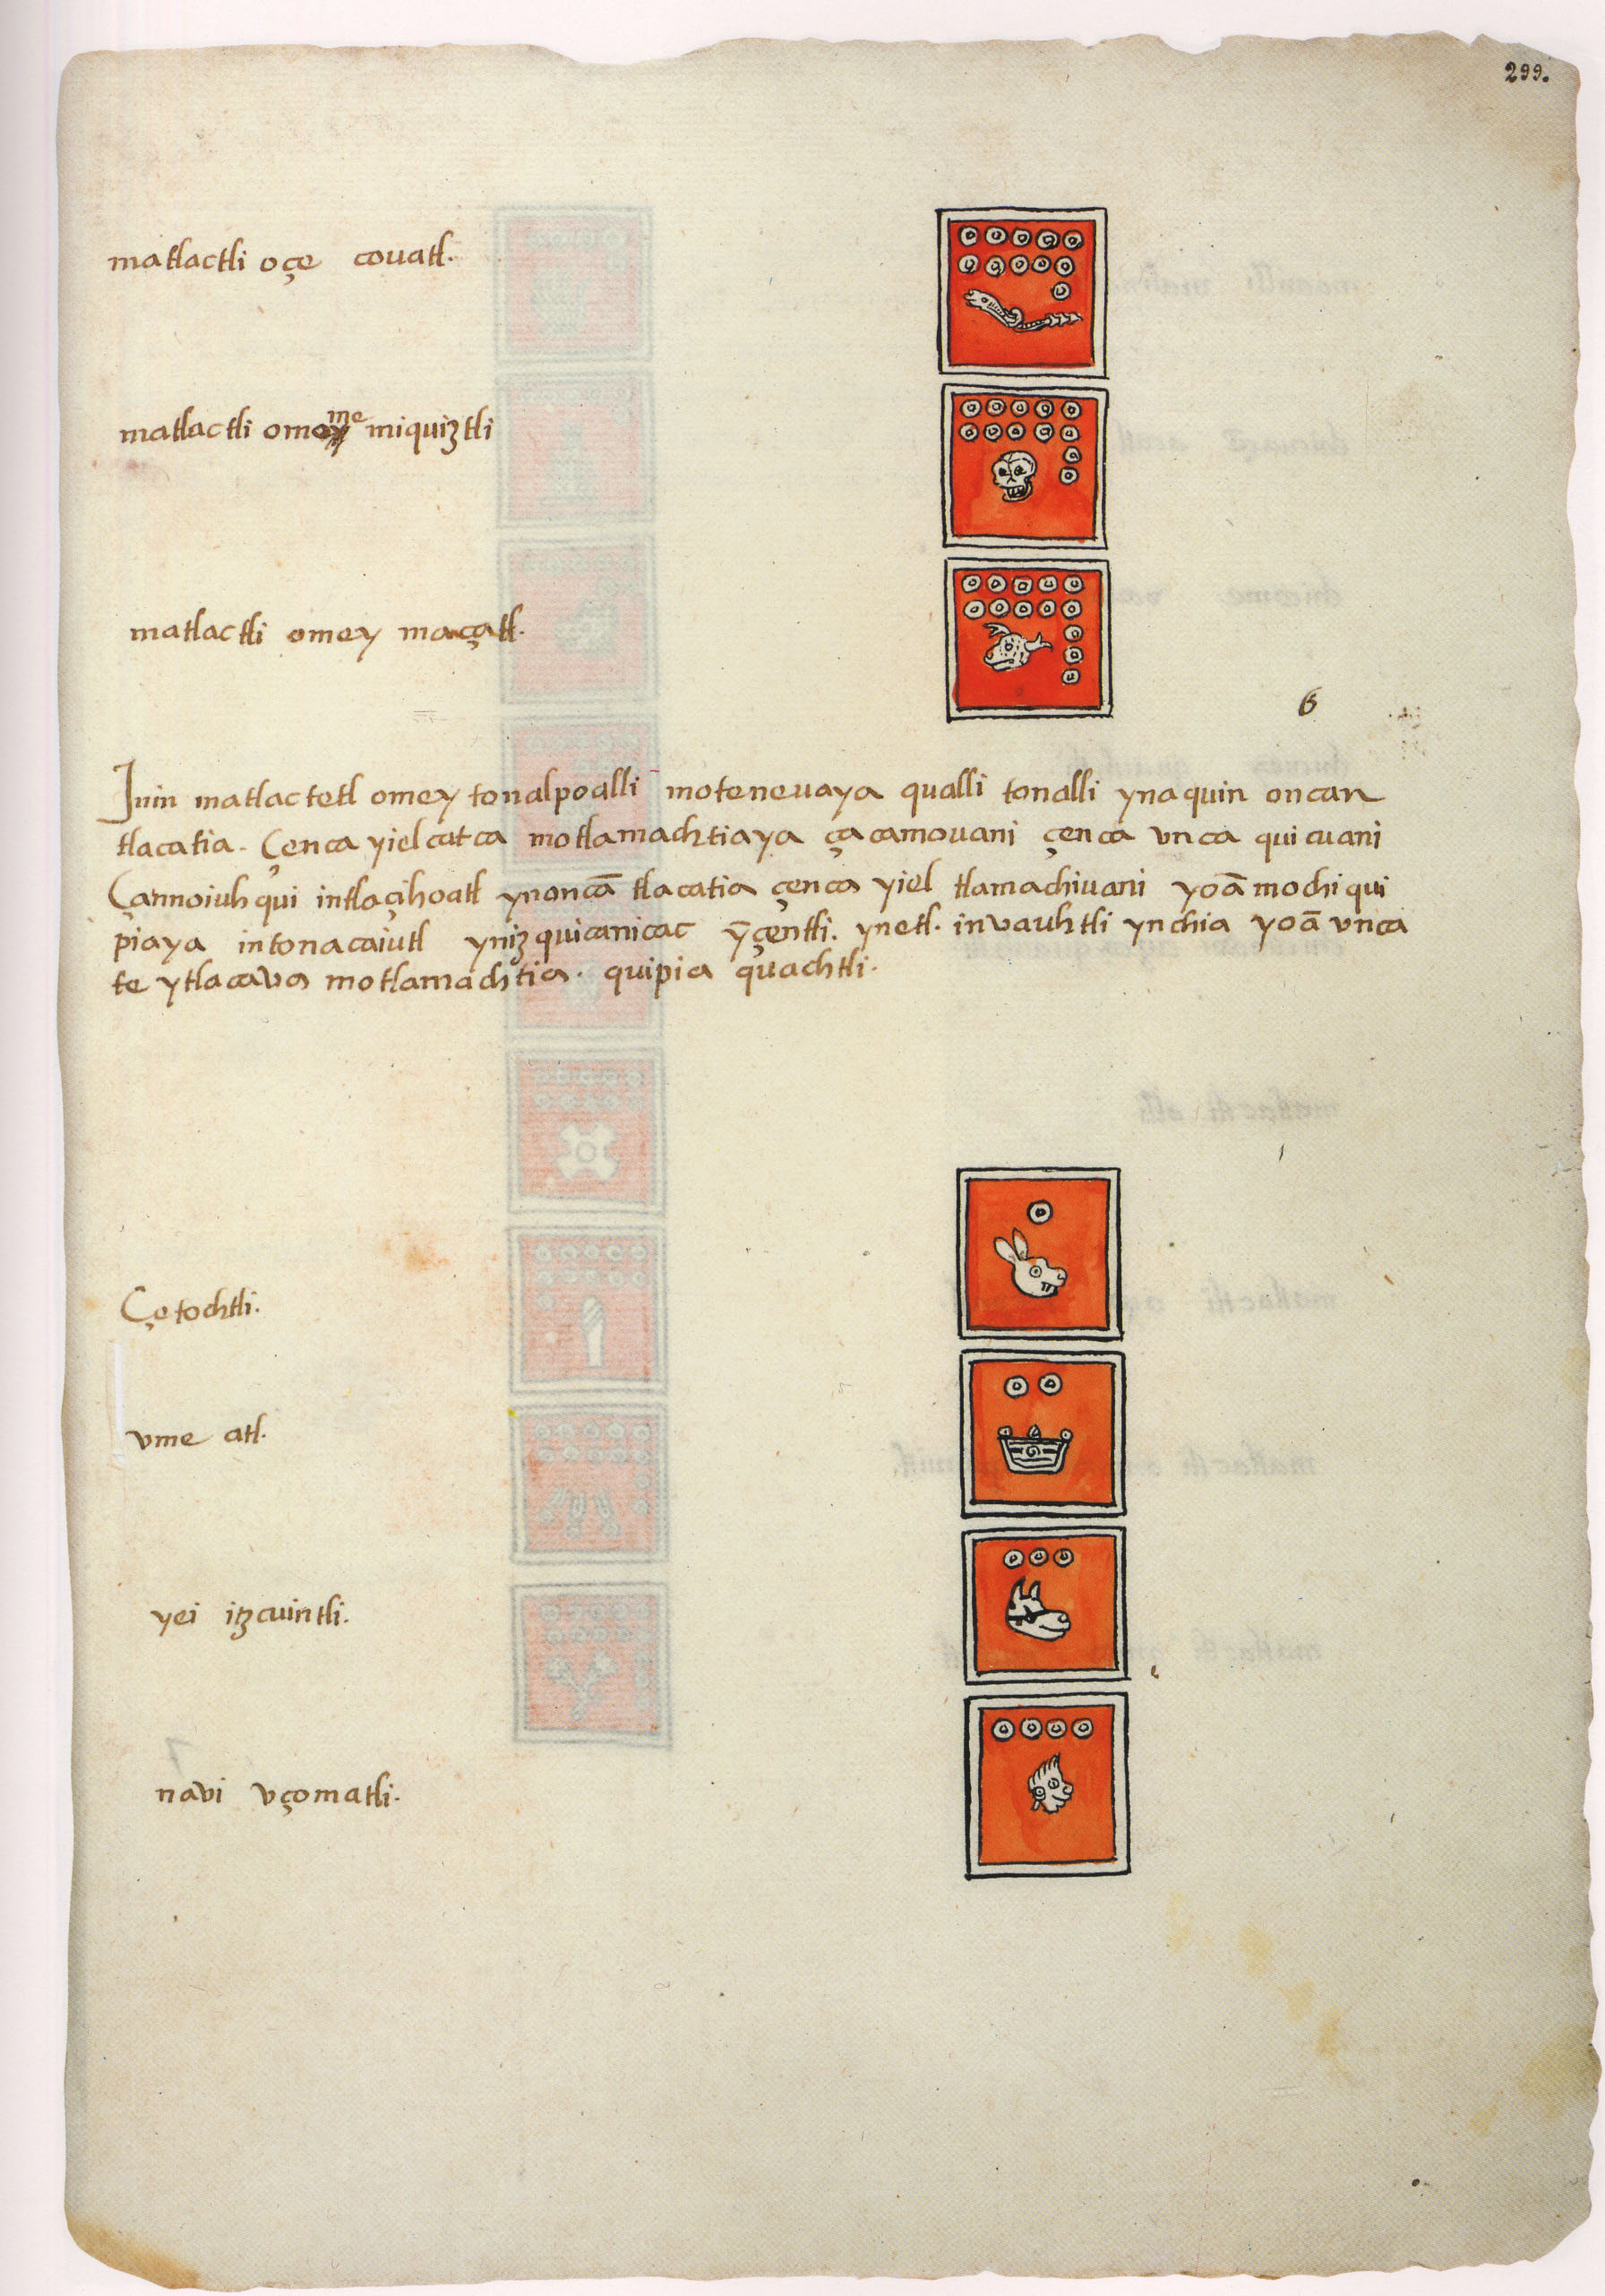 299.
matlactli oçe couatl.
matlactli omome miquiztli
matlactli omey maçatl.
6
Inin matlactetl omey tonalpoalli motenevaya qualli tonalli ynaquin oncan
tlacatia. Çenca yiel catca motlamachtiaya çacamovani çenca vnca quicuani
Çannoiuhqui intlaçihoatl ynoncā tlacatia çenca yiel tlamachivani yoā mochi qui
piaya intonacaiutl ynizquicanicac ȳçentli. ynetl. invauhtli ynchia yoā vnca
te ytlacava motlamachtia. quipia quachtli.
Çe tochtli.
vme atl.
yei itzcuintli.
navi vçomatli.